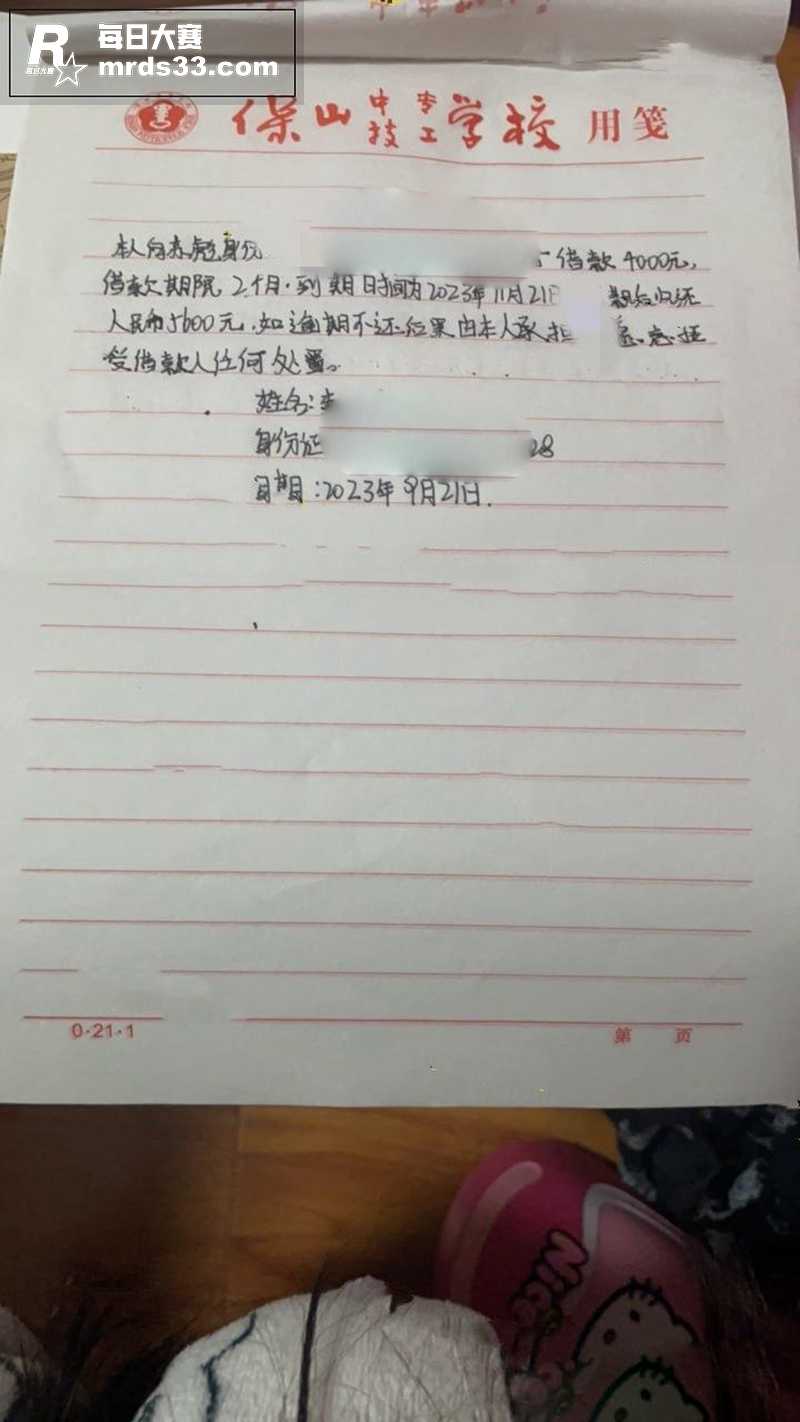 R 每日大赛
每日大赛 mrds33.com
保山中专技工学校 用笺
本人向 身份 借款4000元,
借款期限2个月.到期日时间为2023年11月21日 归还
人民币5600元.如逾期不还后果由本人承担
受借款人任何处置。
姓名:李
身份证 28
日期:2023年9月21日.
0·21·1 第 页
Nice